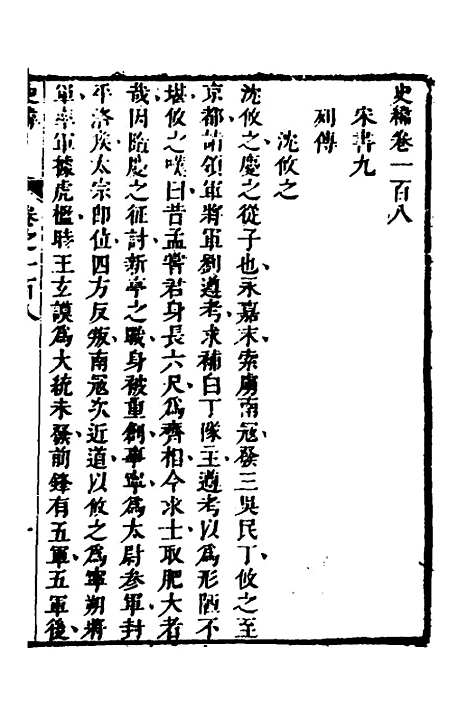 史編卷一百八
宋書九
列傳
沈攸之
沈攸之慶之從子也永嘉末索虜南寇發三吳民丁攸之至
京都詣領軍將軍劉遵考求補白丁隊主遵考以爲形陋不
堪攸之嘆曰昔孟嘗君身長六尺爲齊相今求士取肥大者
哉因隨慶之征討新亭之戰身被重創事寧爲太尉參軍封
平洛侯太宗即位四方反叛南寇次近道以攸之爲寧朔將
軍率軍據虎檻時王玄謨爲大統未發前鋒有五軍五軍後
史編
卷之一百八
一